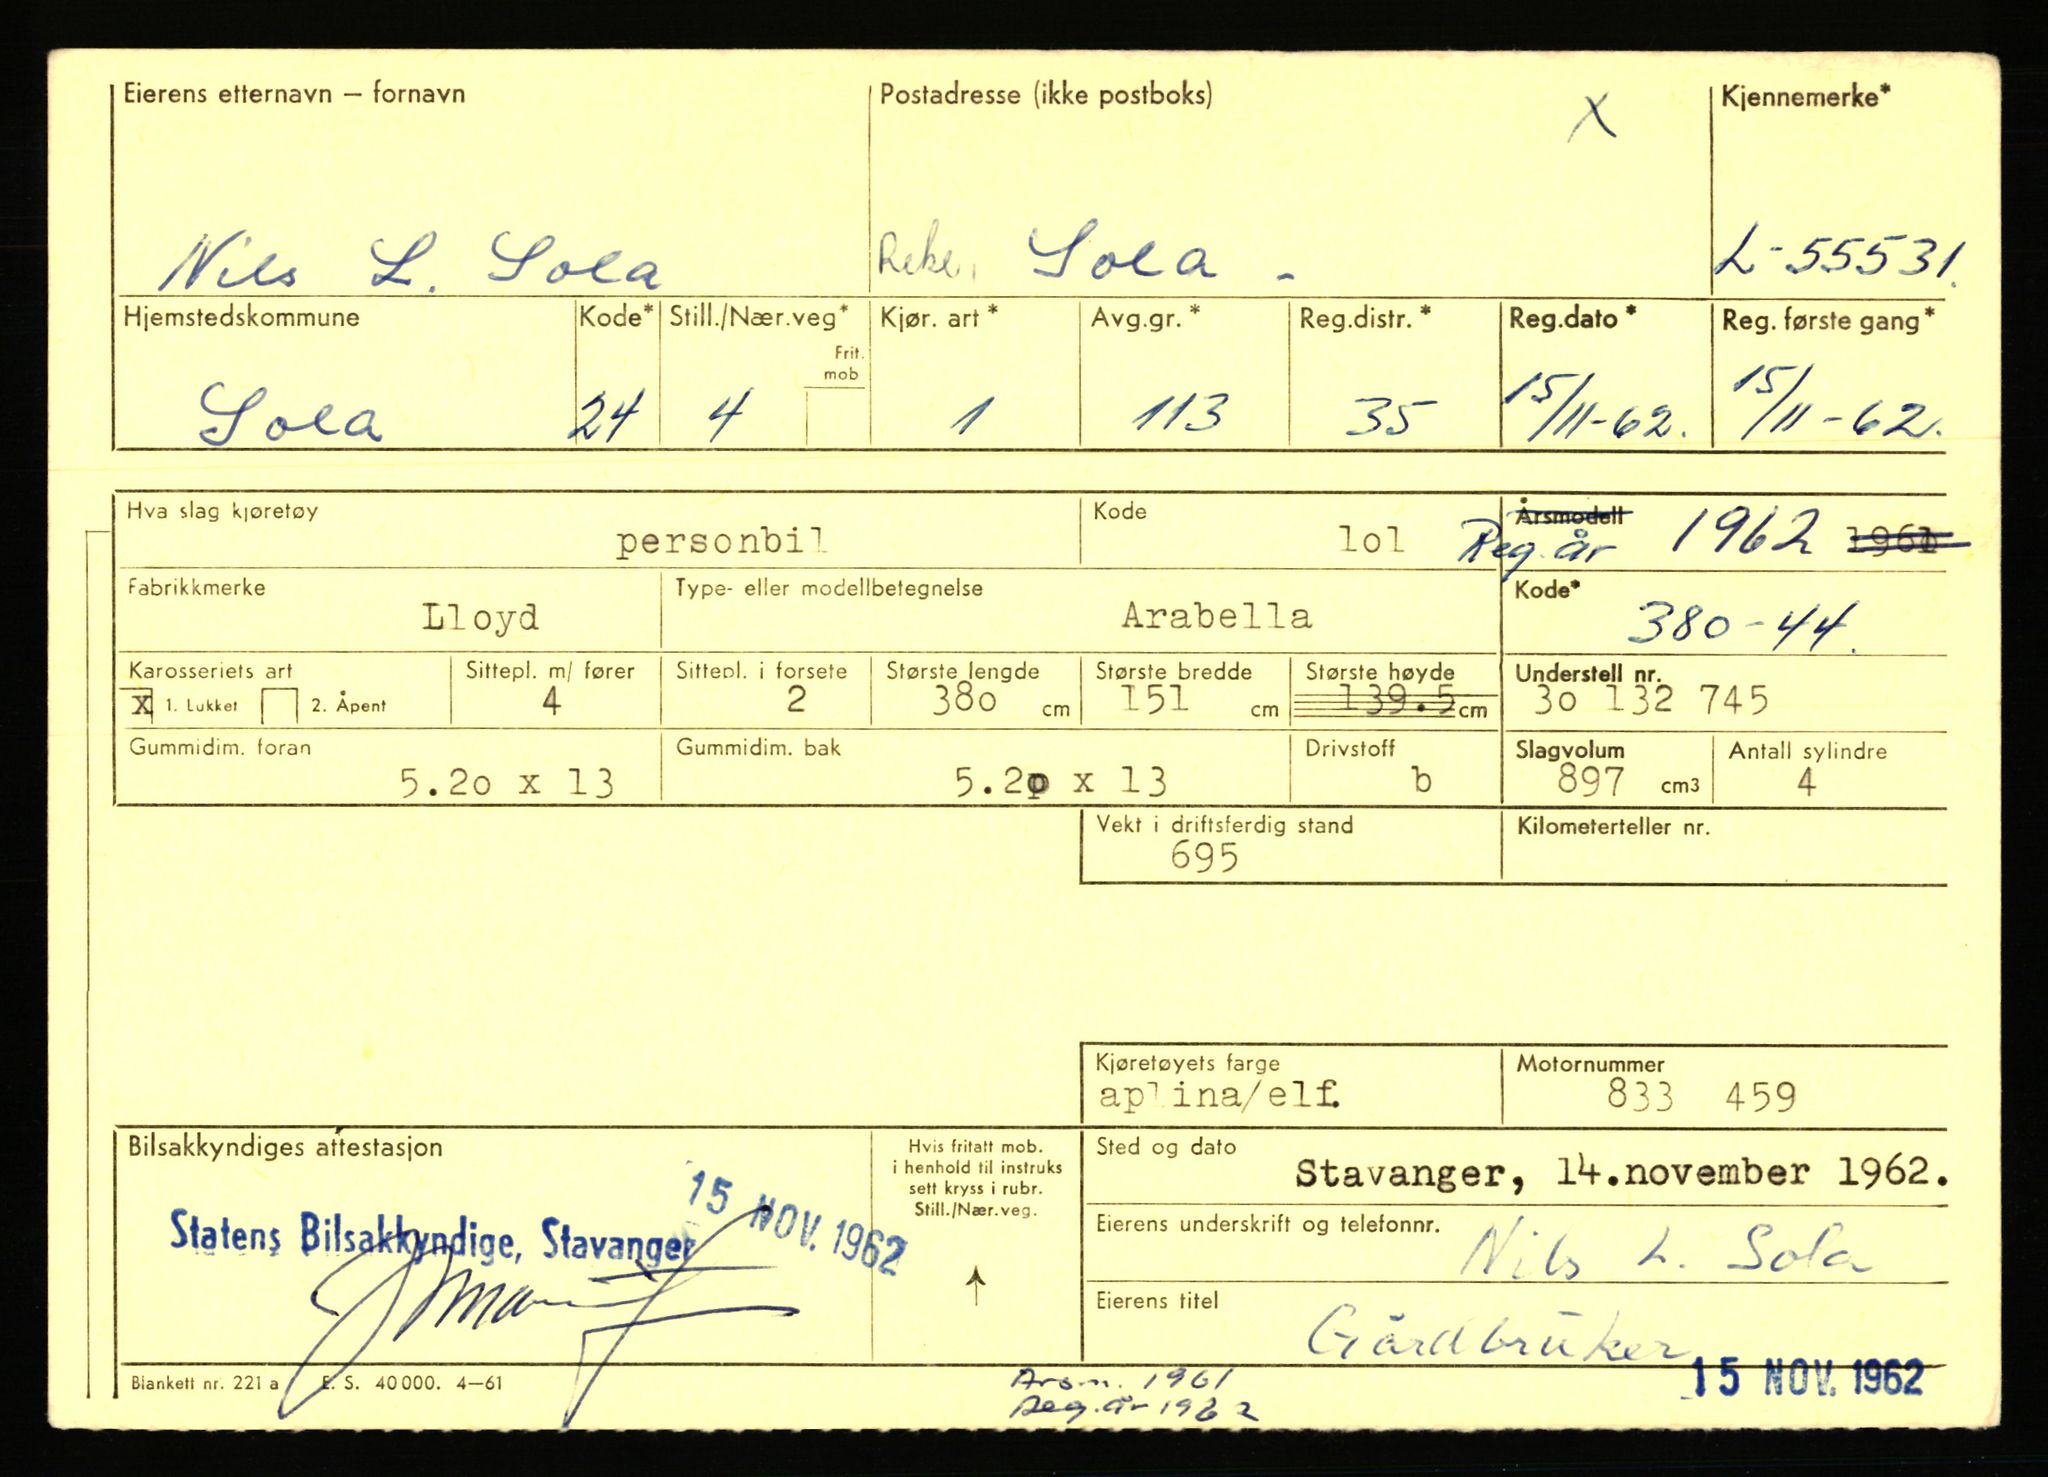 Eierens etternavn — fornavn Postadresse (ikke postboks) X Kjennemerke*
Nils L. Sola Sola - L-55531.
Hjemstedskommune Kode* Still./Nær.veg* Kjør. art* Avg.gr.* Reg.distr.* Reg.dato* Reg. første gang*
Frit.
mob
Sola 24 4 1 113 35 15/11-62. 15/11-62.
Hva slag kjøretøy Kode Årsmodell
personbil lol Reg. år 1962 1961
Fabrikkmerke Type- eller modellbetegnelse Kode*
Lloyd Arabella 380-44.
Karosseriets art Sittepl. m/ fører Sittepl. i forsete Største lengde Største bredde Største høyde Understell nr.
X 1. Lukket 2. Åpent 4 2 38o cm 151 cm 139.5 cm 3o 132 745
Gummidim. foran Gummidim. bak Drivstoff Slagvolum Antall sylindre
5.2o x 13 5.2o x 13 b 897 cm3 4
Vekt i driftsferdig stand Kilometerteller nr.
695
Kjøretøyets farge Motornummer
aplina/elf. 833 459
Bilsakkyndiges attestasjon Hvis fritatt mob.
i henhold til instruks
sett kryss i rubr.
Still./Nær.veg.
Sted og dato
Stavanger, 14.november 1962.
15 NOV. 1962
Statens Bilsakkyndige, Stavanger
Eierens underskrift og telefonnr.
Nils L. Sola
Eierens titel
Gårdbruker
15 NOV. 1962
Blankett nr. 221 a E. S. 40000. 4—61
Arsm. 1961
Reg.år 1962